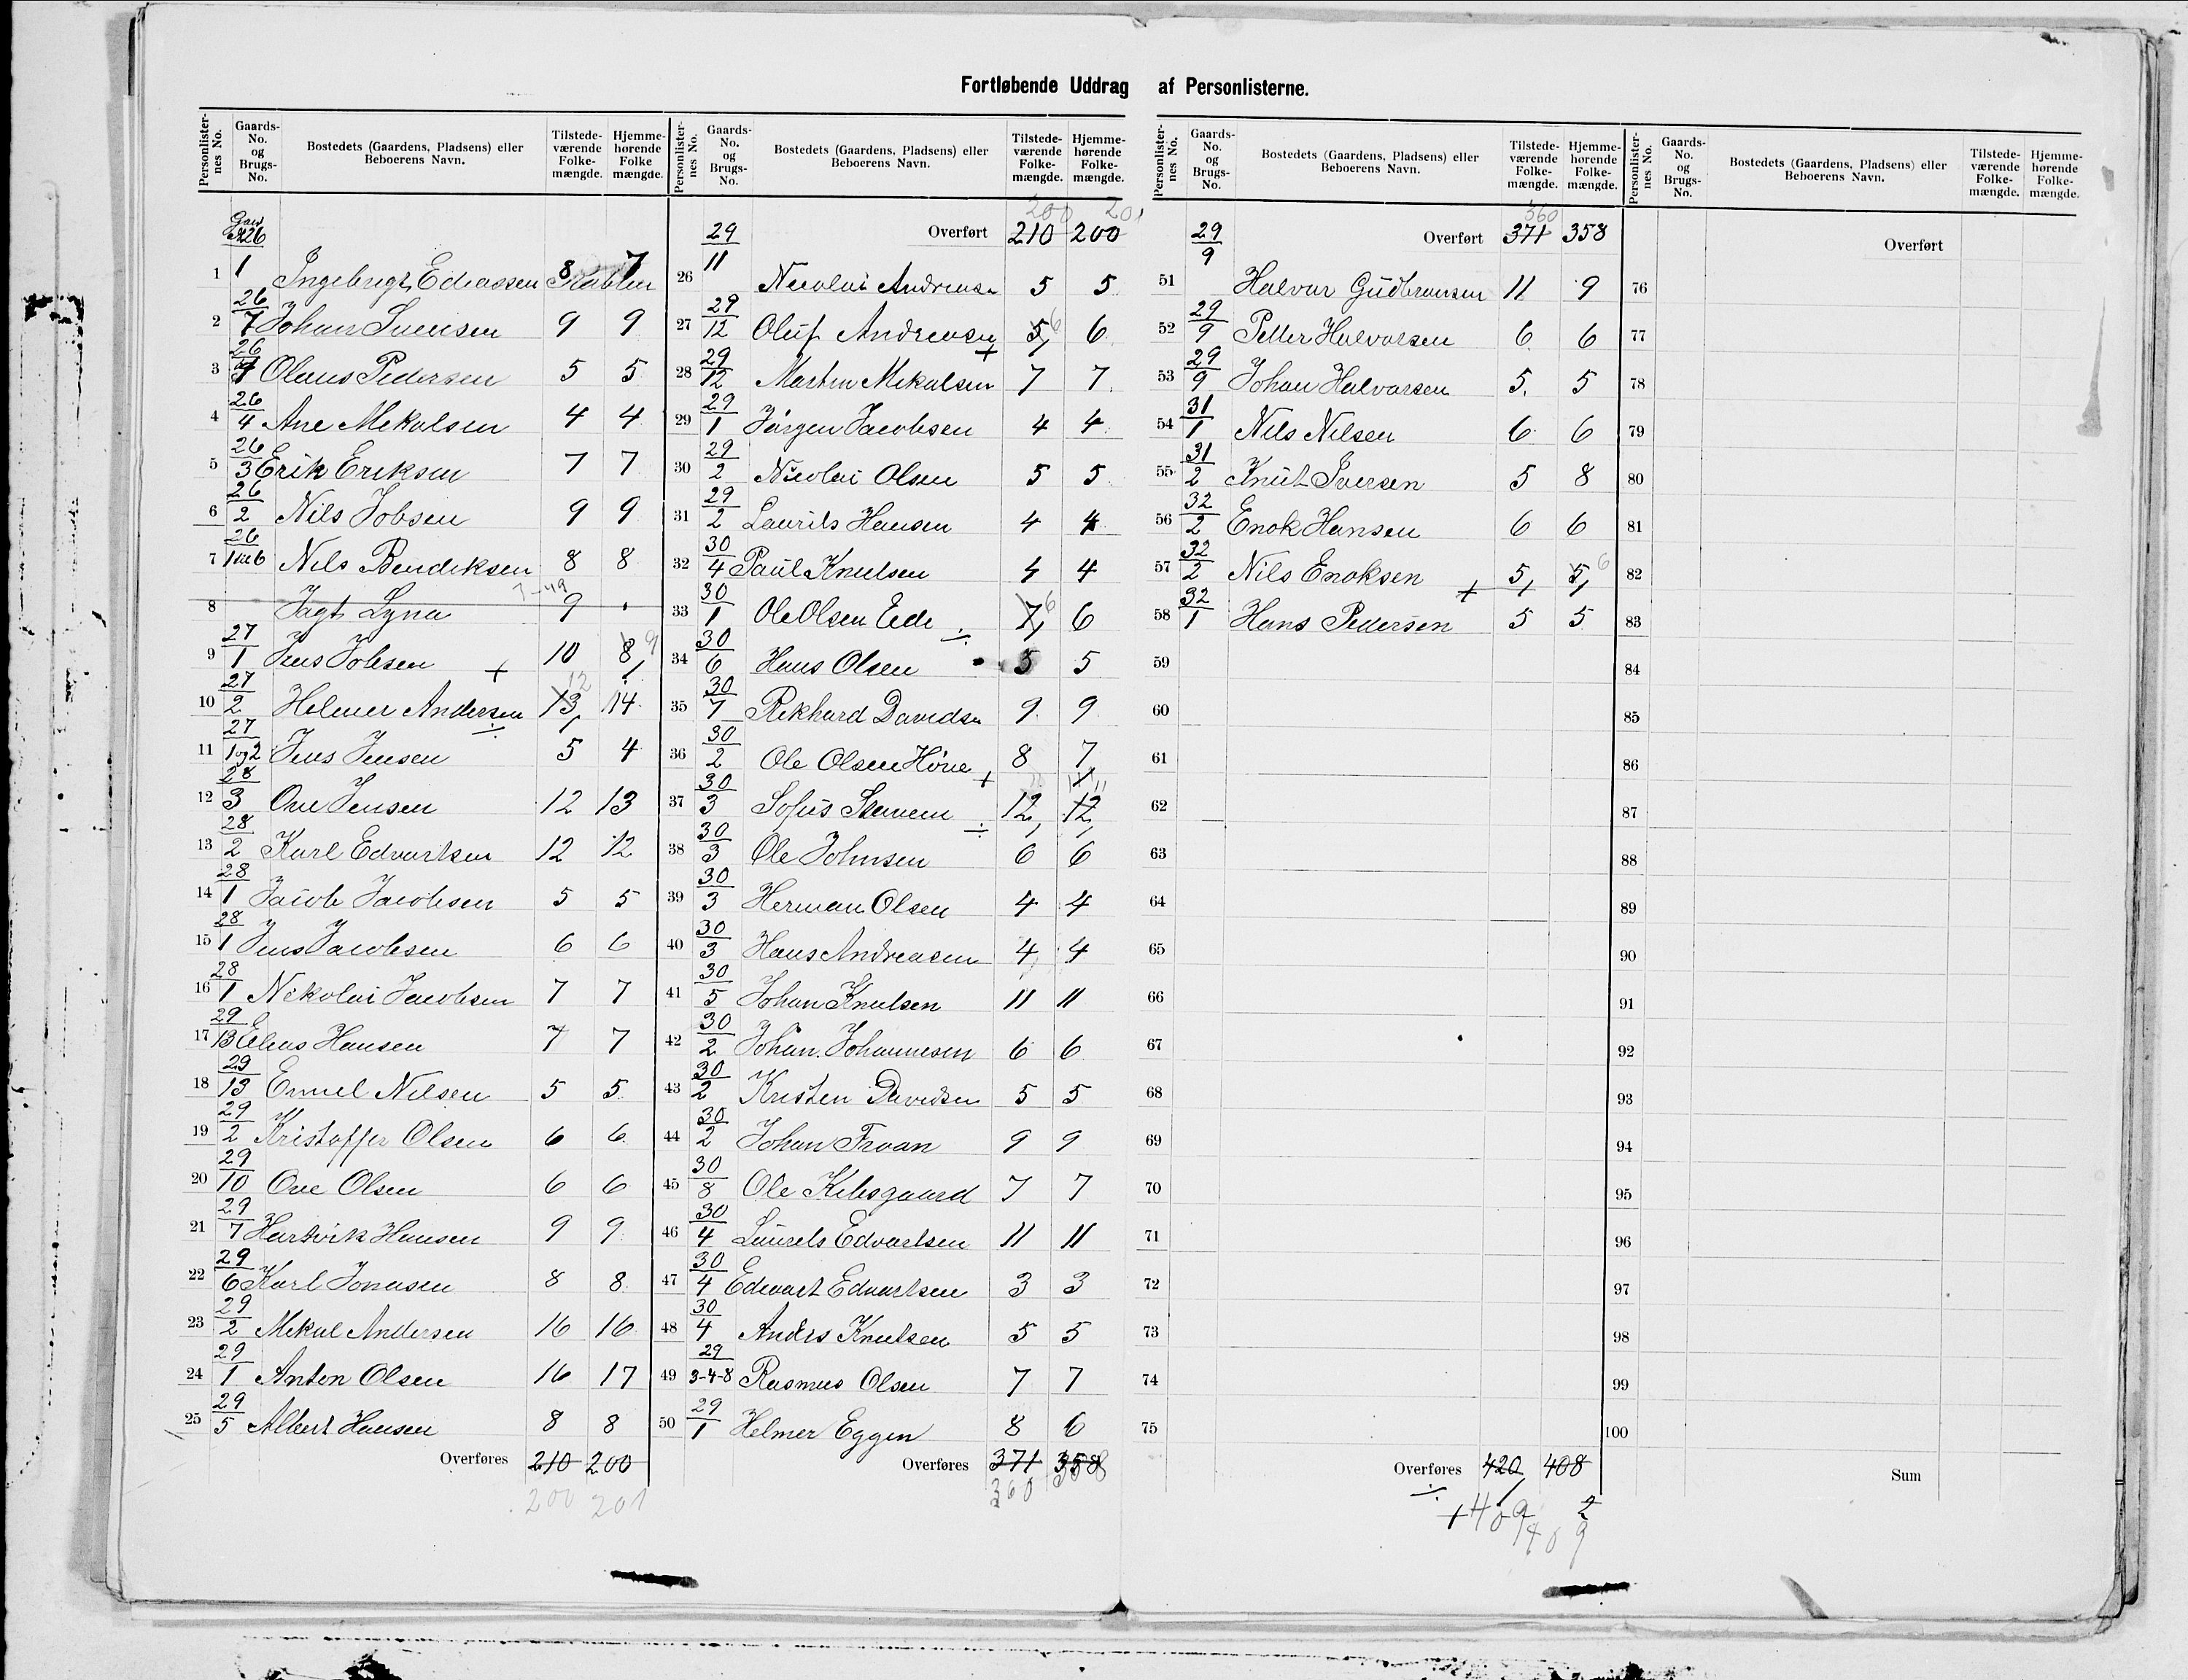 Fortløbende Uddrag af Personlisterne.
Personlisternes No. Gaards-No. og Brugs-No. Bostedets (Gaardens, Pladsens) eller Beboerens Navn. Tilstedeværende Folkemængde. Hjemmehørende Folke mængde.
26
1 1 Ingebrigt 8 7
2 26/7 Johan 9 9
3 26 Olaus Pedersen 5 5
4 26/4 Ane Mekalsen 4 4
5 26/3 Erik Eriksen 7 7
6 26/2 Nils Jobsen 9 9
7 26 Nils Bendiksen 8 8
8 Jagt Lyna 9
9 27/1 Jens Jobsen + 10 8 9
10 27/2 Helmer Andersen 13 12 14
11 27/1og2 Jens Jensen 5 4
12 28/3 Ove Jensen 12 13
13 28/2 Karl Edvartsen 12 12
14 28/1 Jacob Jacobsen 5 5
15 28/1 Jens Jacobsen 6 6
16 28/1 Nikolai Jacobsen 7 7
17 29/13 Elias Hansen 7 7
18 29/13 Emil Nilsen 5 5
19 29/2 Kristoffer Olsen 6 6
20 29/10 Ove Olsen 6 6
21 29/7 Hartvik Hansen 9 9
22 29/6 Karl Jonasen 8 8
23 29/2 Mekal Andersen 16 16
24 29/1 Anton Olsen 16 17
25 29/5 Albert Hansen 8 8
Overføres 210 200
200 201
Personlisternes No. Gaards-No. og Brugs-No. Bostedets (Gaardens, Pladsens) eller Beboerens Navn. Tilstedeværende Folkemængde. Hjemmehørende Folkemængde.
200 201
Overført 210 200
26 29/11 Nicolai Andreasen 5 5
27 29/12 Oluf Andreasen + 5 6 6
28 29/12 Martin Mekalsen 7 7
29 29/1 Jørgen Jacobsen 4 4
30 29/2 Nicolai Olsen 5 5
31 29/2 Laurits Hansen 4 4
32 30/4 Paul Knutsen 4 4
33 30/1 Ole Olsen Eide 7 6 6
34 30/6 Hans Olsen 5 5
35 30/7 Rikhard Davidsen 9 9
36 30/2 Ole Olsen + 8 7
37 30/3 Sofus 12 12 11
38 30/3 Ole Johnsen 6 6
39 30/3 Herman Olsen 4 4
40 30/3 Hans Andreasen 4 4
41 30/5 Johan Knutsen 11 11
42 30/2 Johan Johannesen 6 6
43 30/2 Kristen Davidsen 5 5
44 30/2 Johan Froan 9 9
45 30/8 Ole Kilsgaard 7 7
46 30/4 Laurits Edvartsen 11 11
47 30/4 Edvart Edvartsen 3 3
48 30/4 Anders Knutsen 5 5
49 29/3-4-8 Rasmus Olsen 7 7
50 29/1 Helmer Eggen 8 6
Overføres 371 358
360 358
Personlisternes No. Gaards-No. og Brugs-No. Bostedets (Gaardens, Pladsens) eller Beboerens Navn. Tilstedeværende Folkemængde. Hjemmehørende Folkemængde.
360
Overført 371 358
51 29/9 Halvar Gudbransen 11 9
52 29/9 Petter Halvorsen 6 6
53 29/9 Johan Halvarsen 5 5
54 31/1 Nils Nilsen 6 6
55 31/2 Knut Iversen 5 8
56 32/2 Enok Hansen 6 6
57 32/2 Nils Enoksen + 5 5 6
58 32/1 Hans Pedersen 5 5
59
60
61
62
63
64
65
66
67
68
69
70
71
72
73
74
75
Overføres 420 408
409 2
409
Personlisternes No. Gaards-No. og Brugs-No. Bostedets (Gaardens, Pladsens) eller Beboerens Navn. Tilstedeværende Folkemængde. Hjemmehørende Folkemængde.
Overført
76
77
78
79
80
81
82
83
84
85
86
87
88
89
90
91
92
93
94
95
96
97
98
99
100
Sum